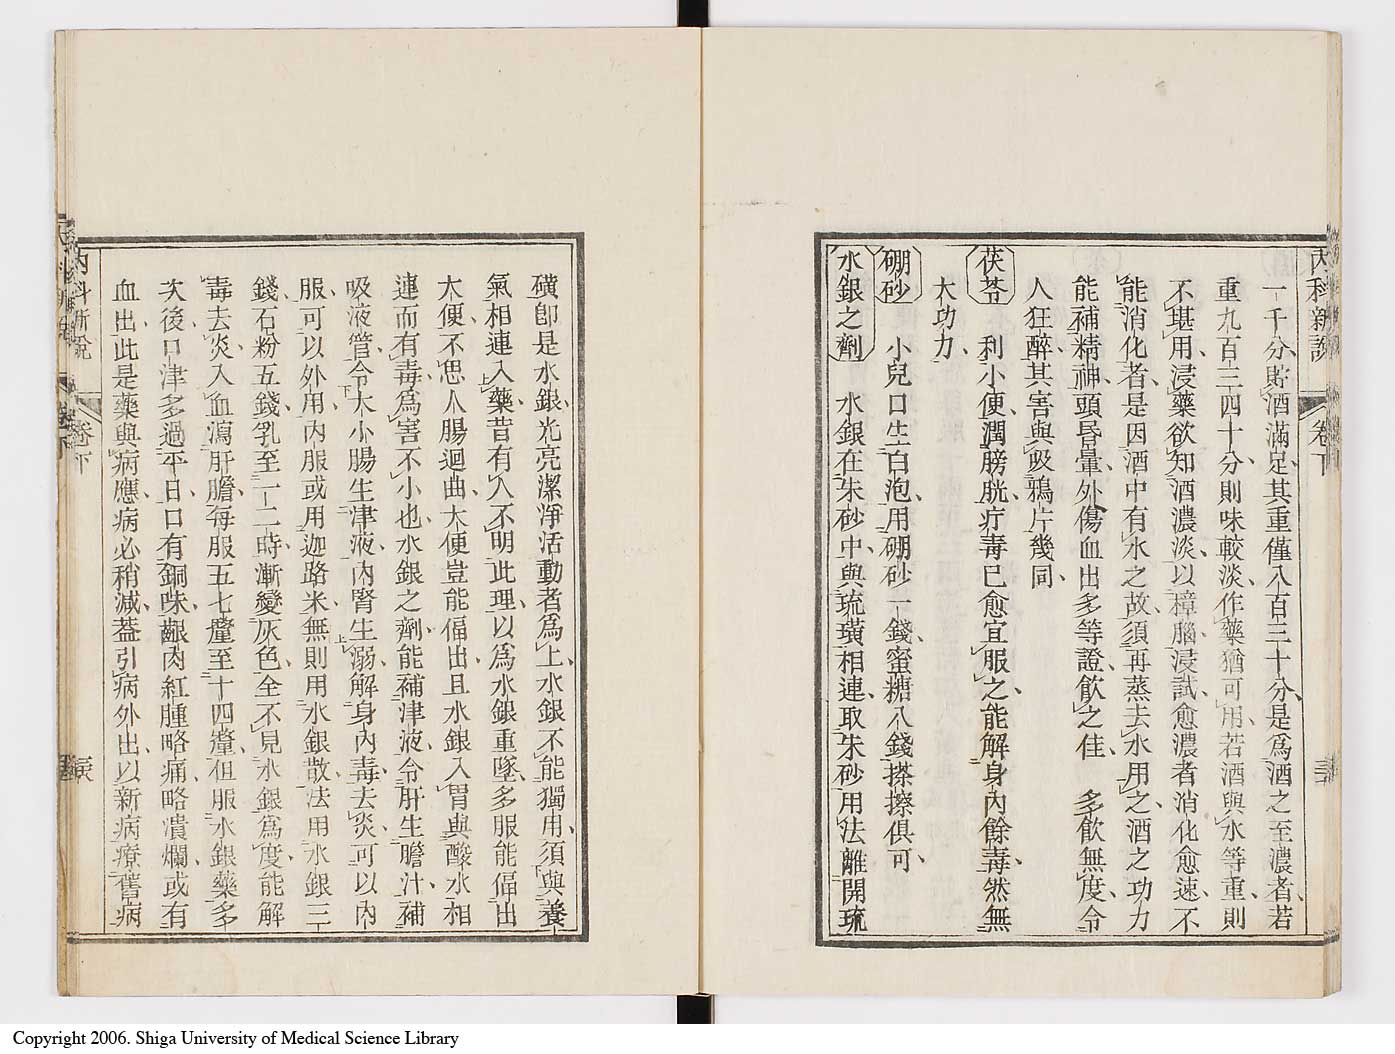 內科新說 卷下
一千分貯酒滿足其重僅八百三十分是爲酒之至濃者若
重九百三四十分則味較淡作藥猶可用若酒與水等重則
不堪用浸藥欲知酒濃淡以樟腦浸試愈濃者消化愈速不
能消化者是因酒中有水之故須再蒸去水用之酒之功力
能補精神頭昏暈外傷血出多等證飮之佳 多飮無度令
人狂醉其害與吸鴉片幾同
茯苓 利小便潤膀胱疔毒已愈宜服之能解身內餘毒然無
大功力
硼砂 小兒口生白泡用硼砂一錢蜜糖八錢搽擦俱可
水銀之劑 水銀在朱砂中與琉璜相連取朱砂用法離開琉
璜卽是水銀光亮潔淨活動者爲上水銀不能獨用須與養
氣相連入藥昔有人不明此理以爲水銀重墜多服能偪出
大便不思人腸迴曲大便豈能偪出且水銀入胃與酸水相
連而有毒爲害不小也水銀之劑能補津液令肝生膽汁補
吸液管令大小腸生津液內腎生溺解身內毒去炎可以內
服可以外用內服或用迦路米無則用水銀散法用水銀三
錢石粉五錢乳至一二時漸變灰色全不見水銀爲度能解
毒去炎入血瀉肝膽每服五七釐至十四釐但服水銀藥多
次後口津多過平日口有銅味齦肉紅腫略痛略潰爛或有
血出此是藥與病應病必稍減葢引病外出以新病療舊病
內科新說 卷下
Copyright 2006. Shiga University of Medical Science Library